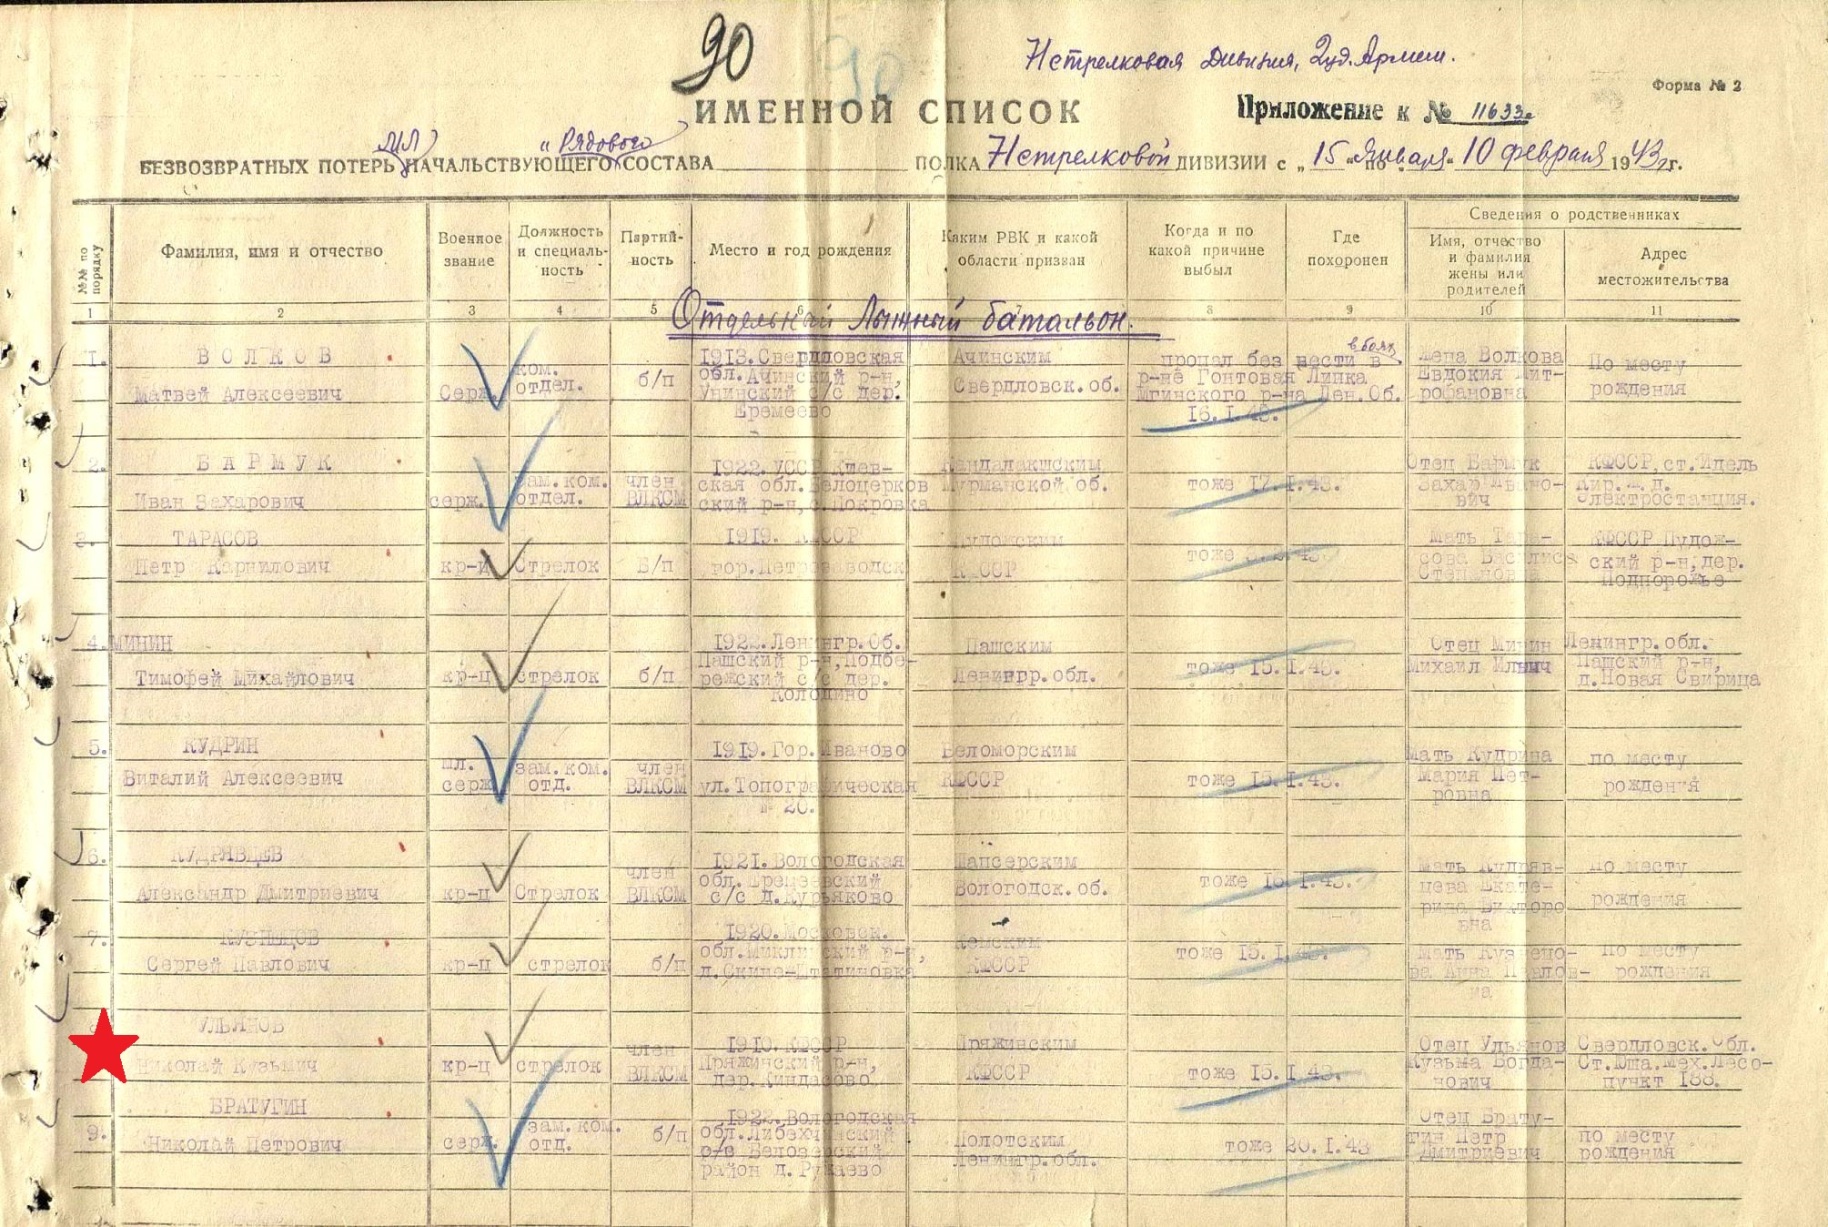 90
Нстрелковая Дивизия, 2уд. Армии.
Форма № 2
ИМЕННОЙ СПИСОК
Приложение к № 11633.
БЕЗВОЗВРАТНЫХ ПОТЕРЬ МЛ НАЧАЛЬСТВУЮЩЕГО „Рядового СОСТАВА ПОЛКА Нстрелковой ДИВИЗИИ с „15" Января по „10 февраля 1943 г.
№№ по порядку
Фамилия, имя и отчество
Военное звание
Должность и специаль-ность
Партий-ность
Место и год рождения
Каким РВК и какой области призван
Когда и по какой причине выбыл
Где похоронен
Сведения о родственниках
Имя, отчество и фамилия жены или родителей
Адрес местожительства
1 2 3 4 5 6 8 9 10 11
Отдельный Лыжный батальон.
1. ВОЛКОВ
Матвей Алексеевич
Серж.
ком. отдел.
б/п
1913. Свердловская
обл. Ачинский р-н,
Унинский с/с дер.
Еремеево
Ачинским
Свердловск. об.
пропал без вести в боях в
р-не Гонтовая Липка
Мгинского р-на Лен. Об.
16.I.43.
Жена Волкова
Евдокия Мит-
рофановна
По месту
рождения
2. БАРМУК
Иван Захарович
серж.
зам. ком.
отдел.
член
ВЛКСМ
1922. УССР Киев-
ская обл. Белоцерков
ский р-н, с. Покровка
Кандалакшским
Мурманской об.
тоже 17.I.43.
Отец Бармук
Захар Ивано-
вич
КФССР, ст. Идель
Кир. ж.д.
Электростанция.
3. ТАРАСОВ
Петр Карпилович
кр-ц
Стрелок
Б/п
1919. КФССР
гор. Петрозаводск
Пудожским
КФССР
тоже 43.
Мать Тара-
сова Василиса
Степановна
КФССР Пудож-
ский р-н, дер.
Подпорожье
4. МИНИН
Тимофей Михайлович
кр-ц
стрелок
б/п
1922. Ленингр. Об.
Пашский р-н, Подбе-
режский с/с дер.
Колодино
Пашским
Ленингр. обл.
тоже 15.I.43.
Отец Минин
Михаил Ильич
Ленингр. обл.
Пашский р-н,
д. Новая Свирица
5. КУДРИН
Виталий Алексеевич
мл.
серж
зам. ком.
отд.
член
ВЛКСМ
1919. Гор. Иваново
ул. Топографическая
№ 20.
Беломорским
КФССР
тоже 15.I.43.
Мать Кудрина
Мария Пет-
ровна
по месту
рождения
6. КУДРЯВЦЕВ
Александр Дмитриевич
кр-ц
Стрелок
член
ВЛКСМ
1921. Вологодская
обл.
с/с д. Курьяково
Вологодск. об.
тоже 15.I.43.
Мать Кудряв-
цева Екате-
рина Викторо
вна
по месту
рождения
7. КУЗНЕЦОВ
Сергей Павлович
кр-ц
стрелок
б/п
1920. Московск.
обл. р-н,
Кемским
КФССР
тоже 15.I.43.
Мать Кузнецо-
ва Анна Павлов-
на
по месту
рождения
УЛЬЯНОВ
Николай Кузьмич
кр-ц
стрелок
член
ВЛКСМ
1910. КФССР
Пряжинский р-н,
дер. Киндасово.
Пряжинским
КФССР
тоже 15.I.43.
Отец Ульянов
Кузьма Богда-
нович
Свердловск. Обл.
Ст. Юша. Мех. Лесо-
пункт 188.
9. БРАТУГИН
Николай Петрович
серж.
зам. ком.
отд.
б/п
1922. Вологодская
обл.
с/с Белозерский
район д. Рукаево
Полотским
Ленингр. обл.
тоже 20.I.43
Отец Брату-
гин Петр
Дмитриевич
по месту
рождения